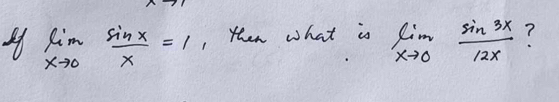 If lim x→0 sin x / x = 1, then what is lim x→0 sin 3x / 12x ?